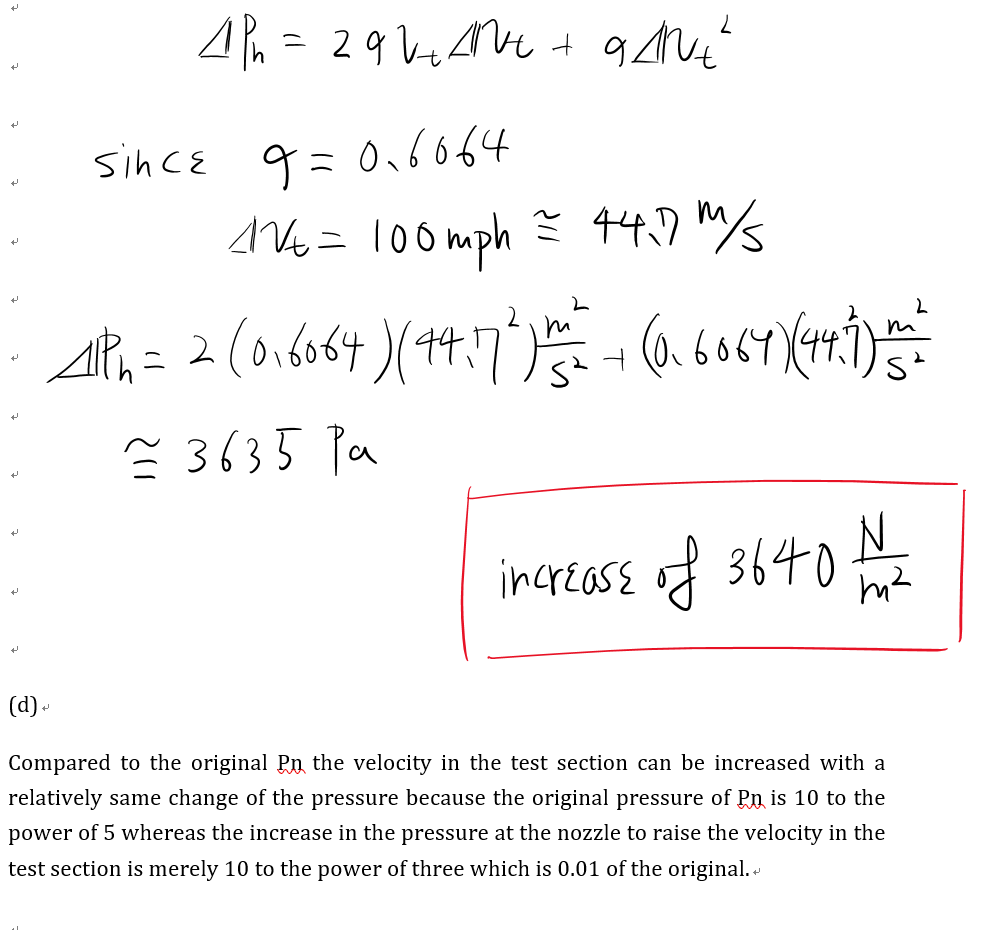 ΔPn = 2 q Vt ΔVt + q ΔVt²
since q = 0.6064
ΔVt = 100 mph ≅ 44.7 m/s
ΔPn = 2 (0.6064)(44.7²) m²/s² + (0.6064)(44.7²) m²/s²
≅ 3635 Pa
increase of 3640 N/m²
(d)
Compared to the original Pn the velocity in the test section can be increased with a
relatively same change of the pressure because the original pressure of Pn is 10 to the
power of 5 whereas the increase in the pressure at the nozzle to raise the velocity in the
test section is merely 10 to the power of three which is 0.01 of the original.